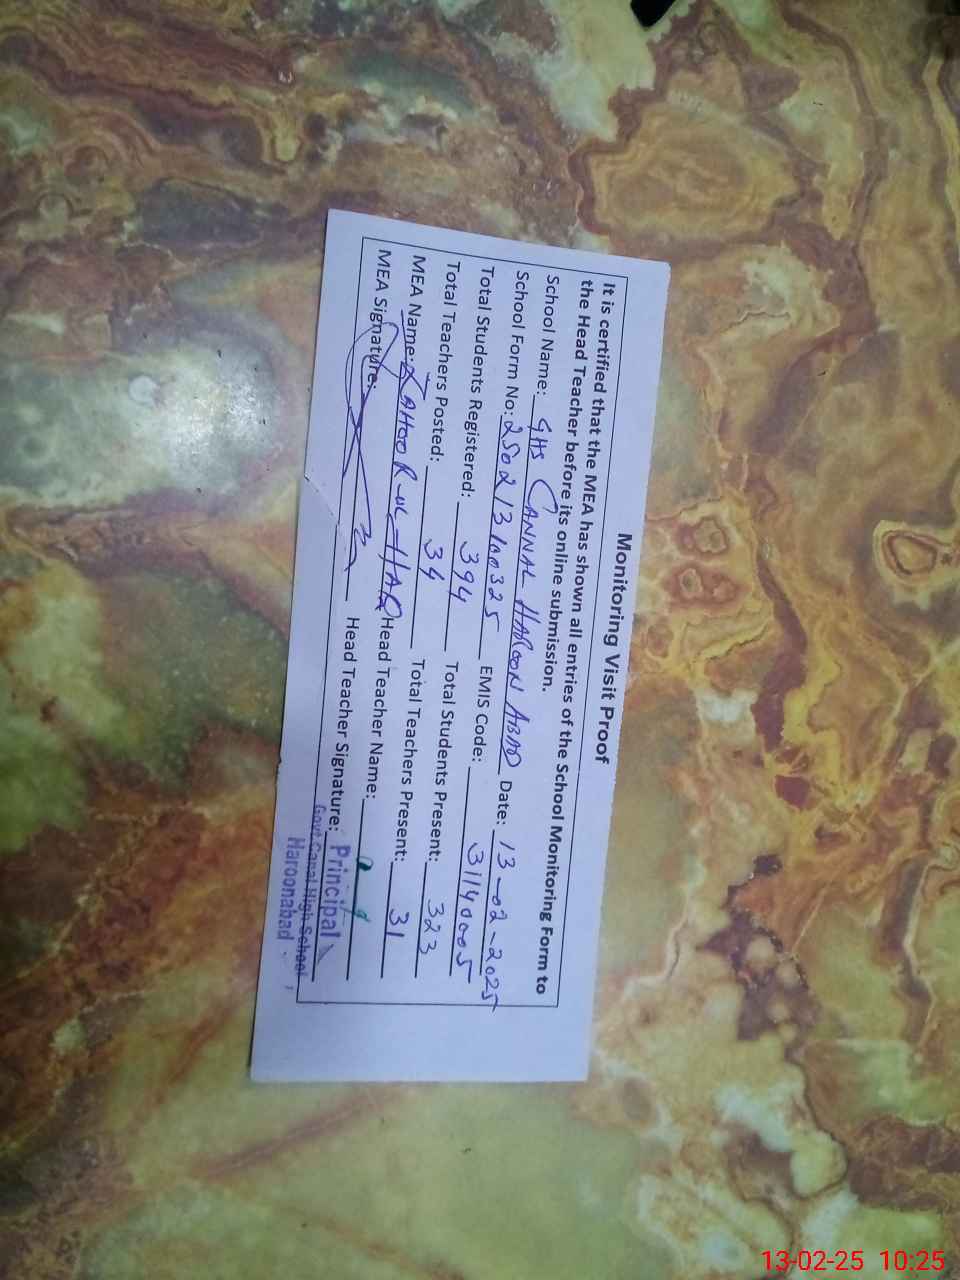 Monitoring Visit Proof
It is certified that the MEA has shown all entries of the School Monitoring Form to
the Head Teacher before its online submission.
School Name: GHS CANNAL HAROON ABAD Date: 13-02-2025
School Form No: 250213100325 EMIS Code: 31140005
Total Students Registered: 394 Total Students Present: 323
Total Teachers Posted: 34 Total Teachers Present: 31
MEA Name: ZAHOOR-UL-HAQ Head Teacher Name:
MEA Signature: Head Teacher Signature:
Principal
Govt Canal High School
Haroonabad
13-02-25 10:25